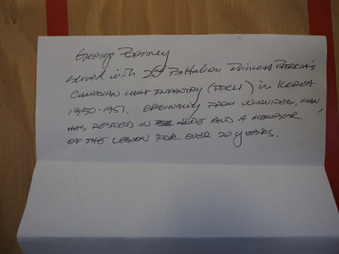 George Bonney
served with 2nd Battalion Princess Patricia's
Canadian Light Infantry (PPCLI) in Korea
1950-1951. Originally from Winnipeg, Man
has resided in here and a member
of the Legion for over 20 years.